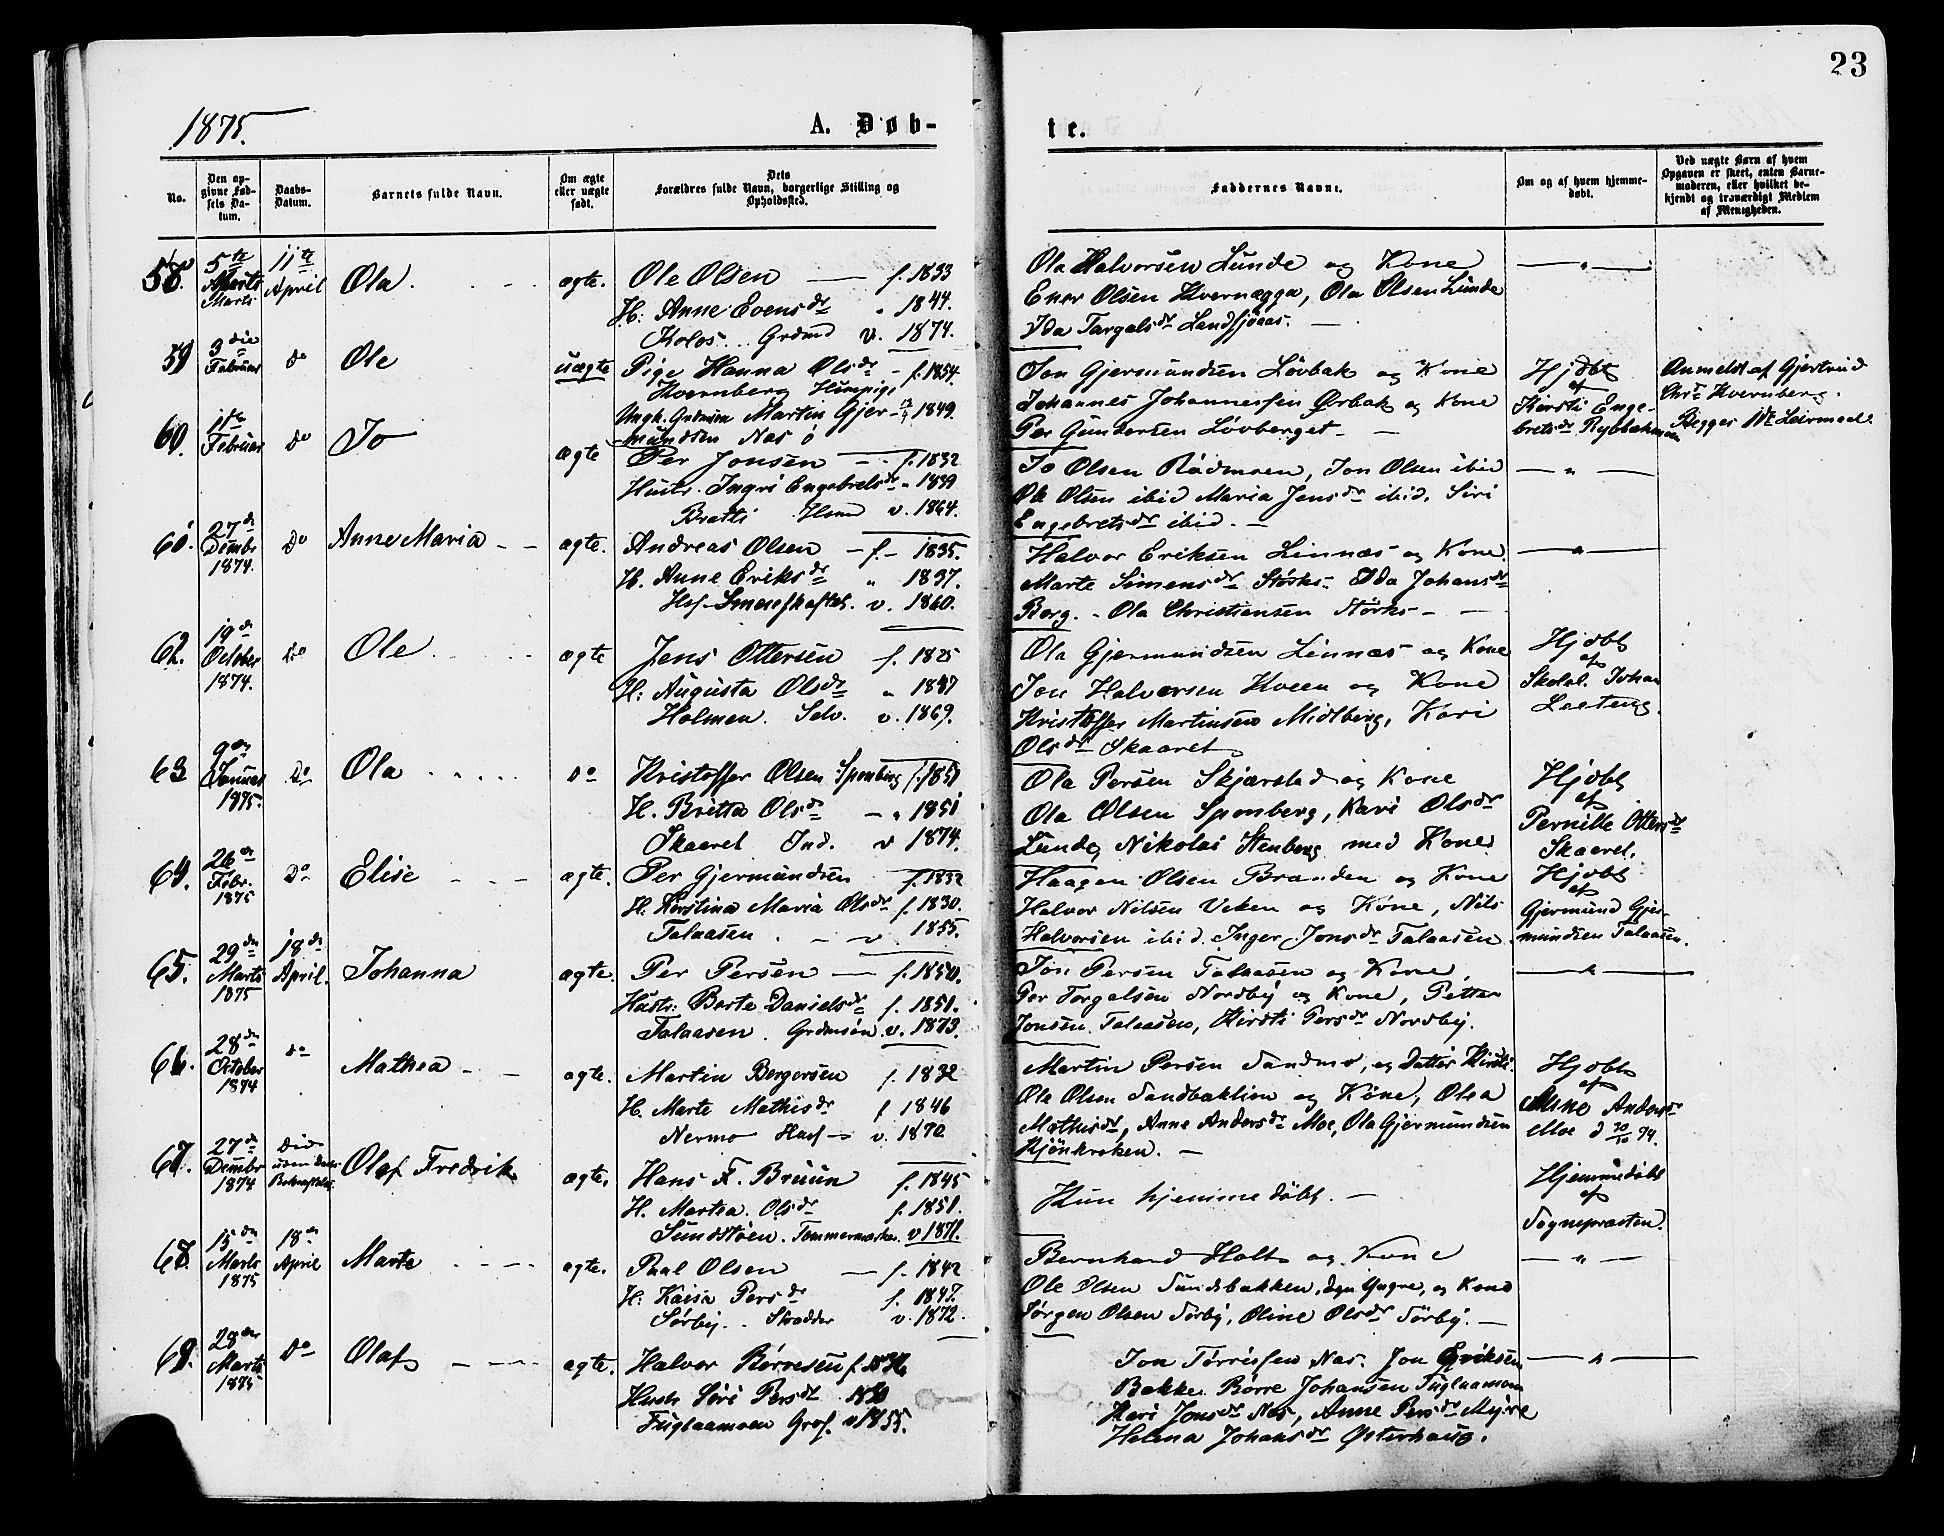 23
1875.
A. Døb-
te.
No.
Den op-
givne Fød-
sels Da-
tum.
Daabs-
Datum.
Barnets fulde Navn.
Om ægte
eller uægte
født.
Dets
Forældres fulde Navn, borgerlige Stilling og
Opholdssted.
Faddernes Navne.
Om og af hvem hjemme-
døbt.
Ved uægte Børn af hvem
Opgaven er skeet, enten Barne-
moderen, eller hvilket be-
kjendt og troværdigt Medlem
af Menigheden.
58. 5te Marts 11te April Ola. ægte. Ole Olsen f. 1833
H: Anne Evensdr " 1844.
Kolos... Grdmd v. 1874.
Ola Halvorsen Lunde og Kone
Ener Olsen Kvernægga, Ola Olsen Lunde
Ida Targalsdr
59 3die Februar do Ole uægte Pige Hanna Olsdr f. 1854.
Kvernberg
Ungk. Grdmsøn Martin Gjer- 1849.
mundsen Næs ø
Jon Gjermundsen Løvbak og Kone
Johannes Johannessen Ørbak og Kone
Per Gundersen Løvberget
Hjdbt
af
Kirsti Enge-
bretsdr
Anmeldt af Gjertrud
Chrdr Kvernberg.
60. Februar do Jo ægte Per Jonsen f. 1832
Hustr. Ingri Engebretsdr " 1839
Bratli Hsmd v. 1864.
Jo Olsen Rådmoen, Jon Olsen ibid
Ole Olsen ibid Maria Jensdr ibid. Siri
Engebretsdr ibid.
61. 27de Decmbr 1874. do Anne Maria ægte. Andreas Olsen f. 1835.
H. Anne Eriksdr " 1837.
v. 1860.
Halvor Eriksen Linnæs og Kone
Marte Simensdr Ida Johansdr
Borg. Ola Christiansen
62. 19de October 1874. do Ole ægte Jens Ottersen f. 1825
H: Augusta Olsdr "
Holmen. Selv. v. 1869.
Ola Gjermundsen Linnæs og Kone
Jon Halvorsen Kveen og Kone
Kristoffer Martinsen Midlberg, Kari
Olsdr Skaaret
Hjdbt
af
Skolel. Johan
63 9de Januar 1875. Do Ola do Kristoffer Olsen Sponberg f. 1851
H. Britta Olsdr " 1851
Skaaret Ind. v 1874.
Ola Persen Skjærstad og Kone
Ola Olsen Sponberg, Kari Olsdr
Lunde, Nikolai Stenberg med Kone
Hjdbt
af
Pernille Ottersdr
Skaaret.
64. 26de Febr. 1875 Do Elise ægte. Per Gjermundsen f. 1832
H. Kerstina Maria Olsdr f. 1830.
Talaasen v 1855.
Haagen Olsen Branden og Kone
Halvor Nilsen Veken og Kone, Nils
Halvorsen ibid. Inger Jonsdr Talaasen
Hjdbt
af
Gjermund Gjer-
mundsen Talaasen.
65. 29de Marts 1875 18de April. Johanna ægte. Per Persen f. 1850.
Hustr: Berte Danielsdr f. 1851.
Talaasen. Grdmsøn. v. 1873.
Jon Persen Talaasen og Kone,
Per Torgalsen Nordby og Kone, Petter
Jonsen Talaasen, Kirsti Persdr Nordby.
66. 28de October 1874 do Mathea ægte. Martin Bergersen f. 1832
H. Marte Mathisdr f 1846
Nermo v. 1870
Martin Persen Sandmo, og Datter Kirsti.
Ole Olsen Sandbaklien og Kone, Olea
Mathisdr, Anne Andersdr Moe, Ola Gjermundsen
Kjönkroken.
Hjdbt
af
Anne Andersdr
Moe d 30/10 74.
67. 27de Decmbr 1874 Olaf Fredrik ægte. Hans F. Bruun f. 1845
H. Martea. Olsdr f. 1851.
Sundstøen. v 1871.
Kun hjemmedöbt.
Hjemmedöbt
af
Sognepræsten.
68. 15de Marts 1875 18de April Marte ægte. Paal Olsen f. 1842
H: Kaisa Persdr f. 1847.
Sørby. Skrædder v. 1872.
Bernhard Holt og Kone
Ole Olsen Sundsbakken, den Yngre, og Kone
Jörgen Olsen Sørby, Oline Olsdr Sörby.
69. 28de Marts 1875 do Olaf ægte. Halvor Børresen f. 1832
Hustr Siri Persdr 1830
Fuglaamoen v 1855.
Jon Törrissen Næs. Jon Eriksen
Bakken Børre Johansen Fuglaamoen
Kari Jonsdr Næs, Anne Persdr Myre
Helena Johansdr Østerhaug.